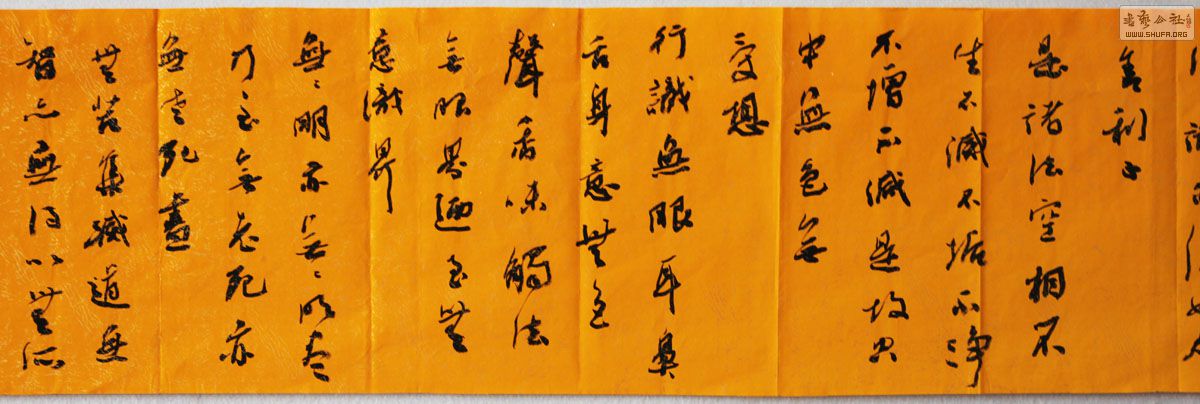 舍利子
是諸法空相不
生不滅不垢不淨
不增不減是故空
中無色無
受想
行識無眼耳鼻
舌身意無色
聲香味觸法
無眼界迺至無
意識界
無〻明亦無〻明盡
乃至無老死亦
無老死盡
無苦集滅道無
智亦無得以無所
WWW.SHUFA.ORG